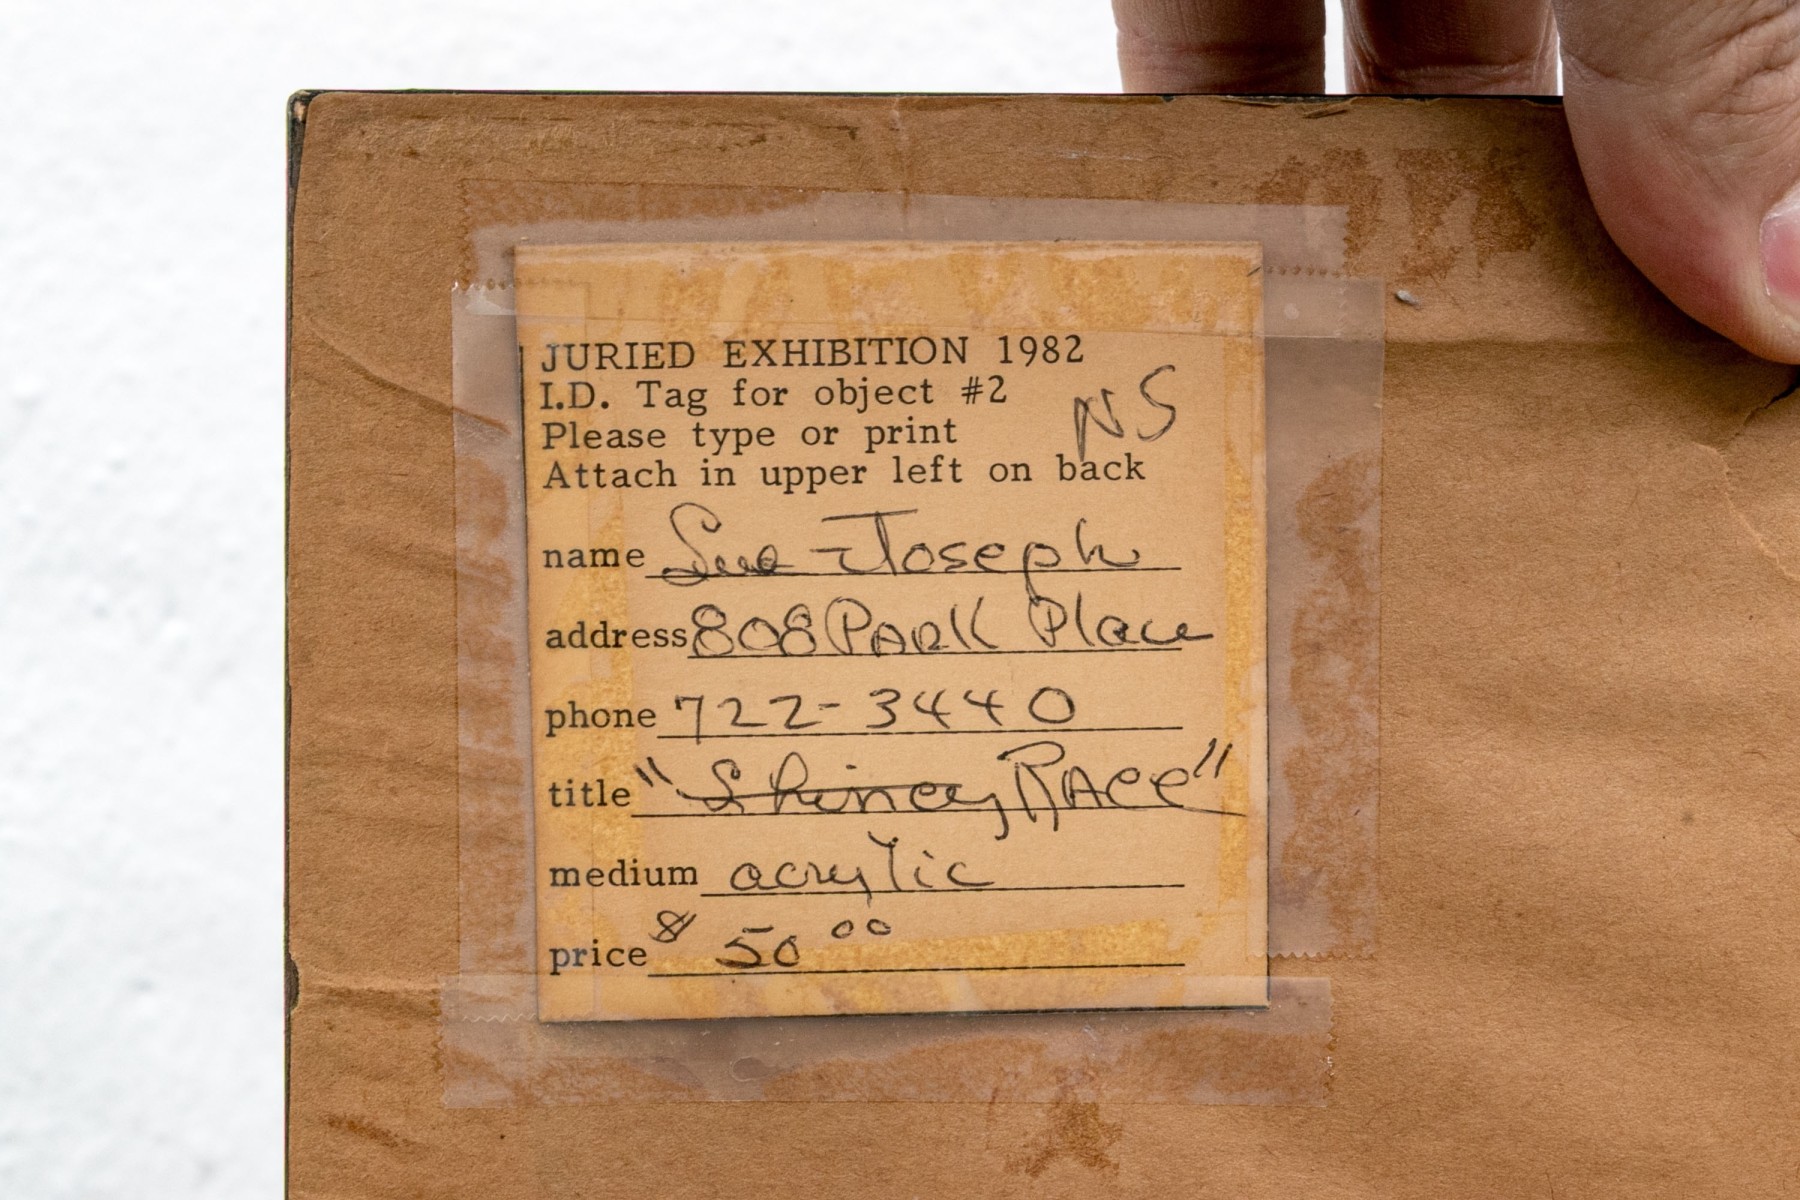 JURIED EXHIBITION 1982
I.D. Tag for object #2
NS
Please type or print
Attach in upper left on back
name Sue Joseph
address 808 PARK Place
phone 722-3440
title "Shiney RACE"
medium acrylic
price $ 50 00